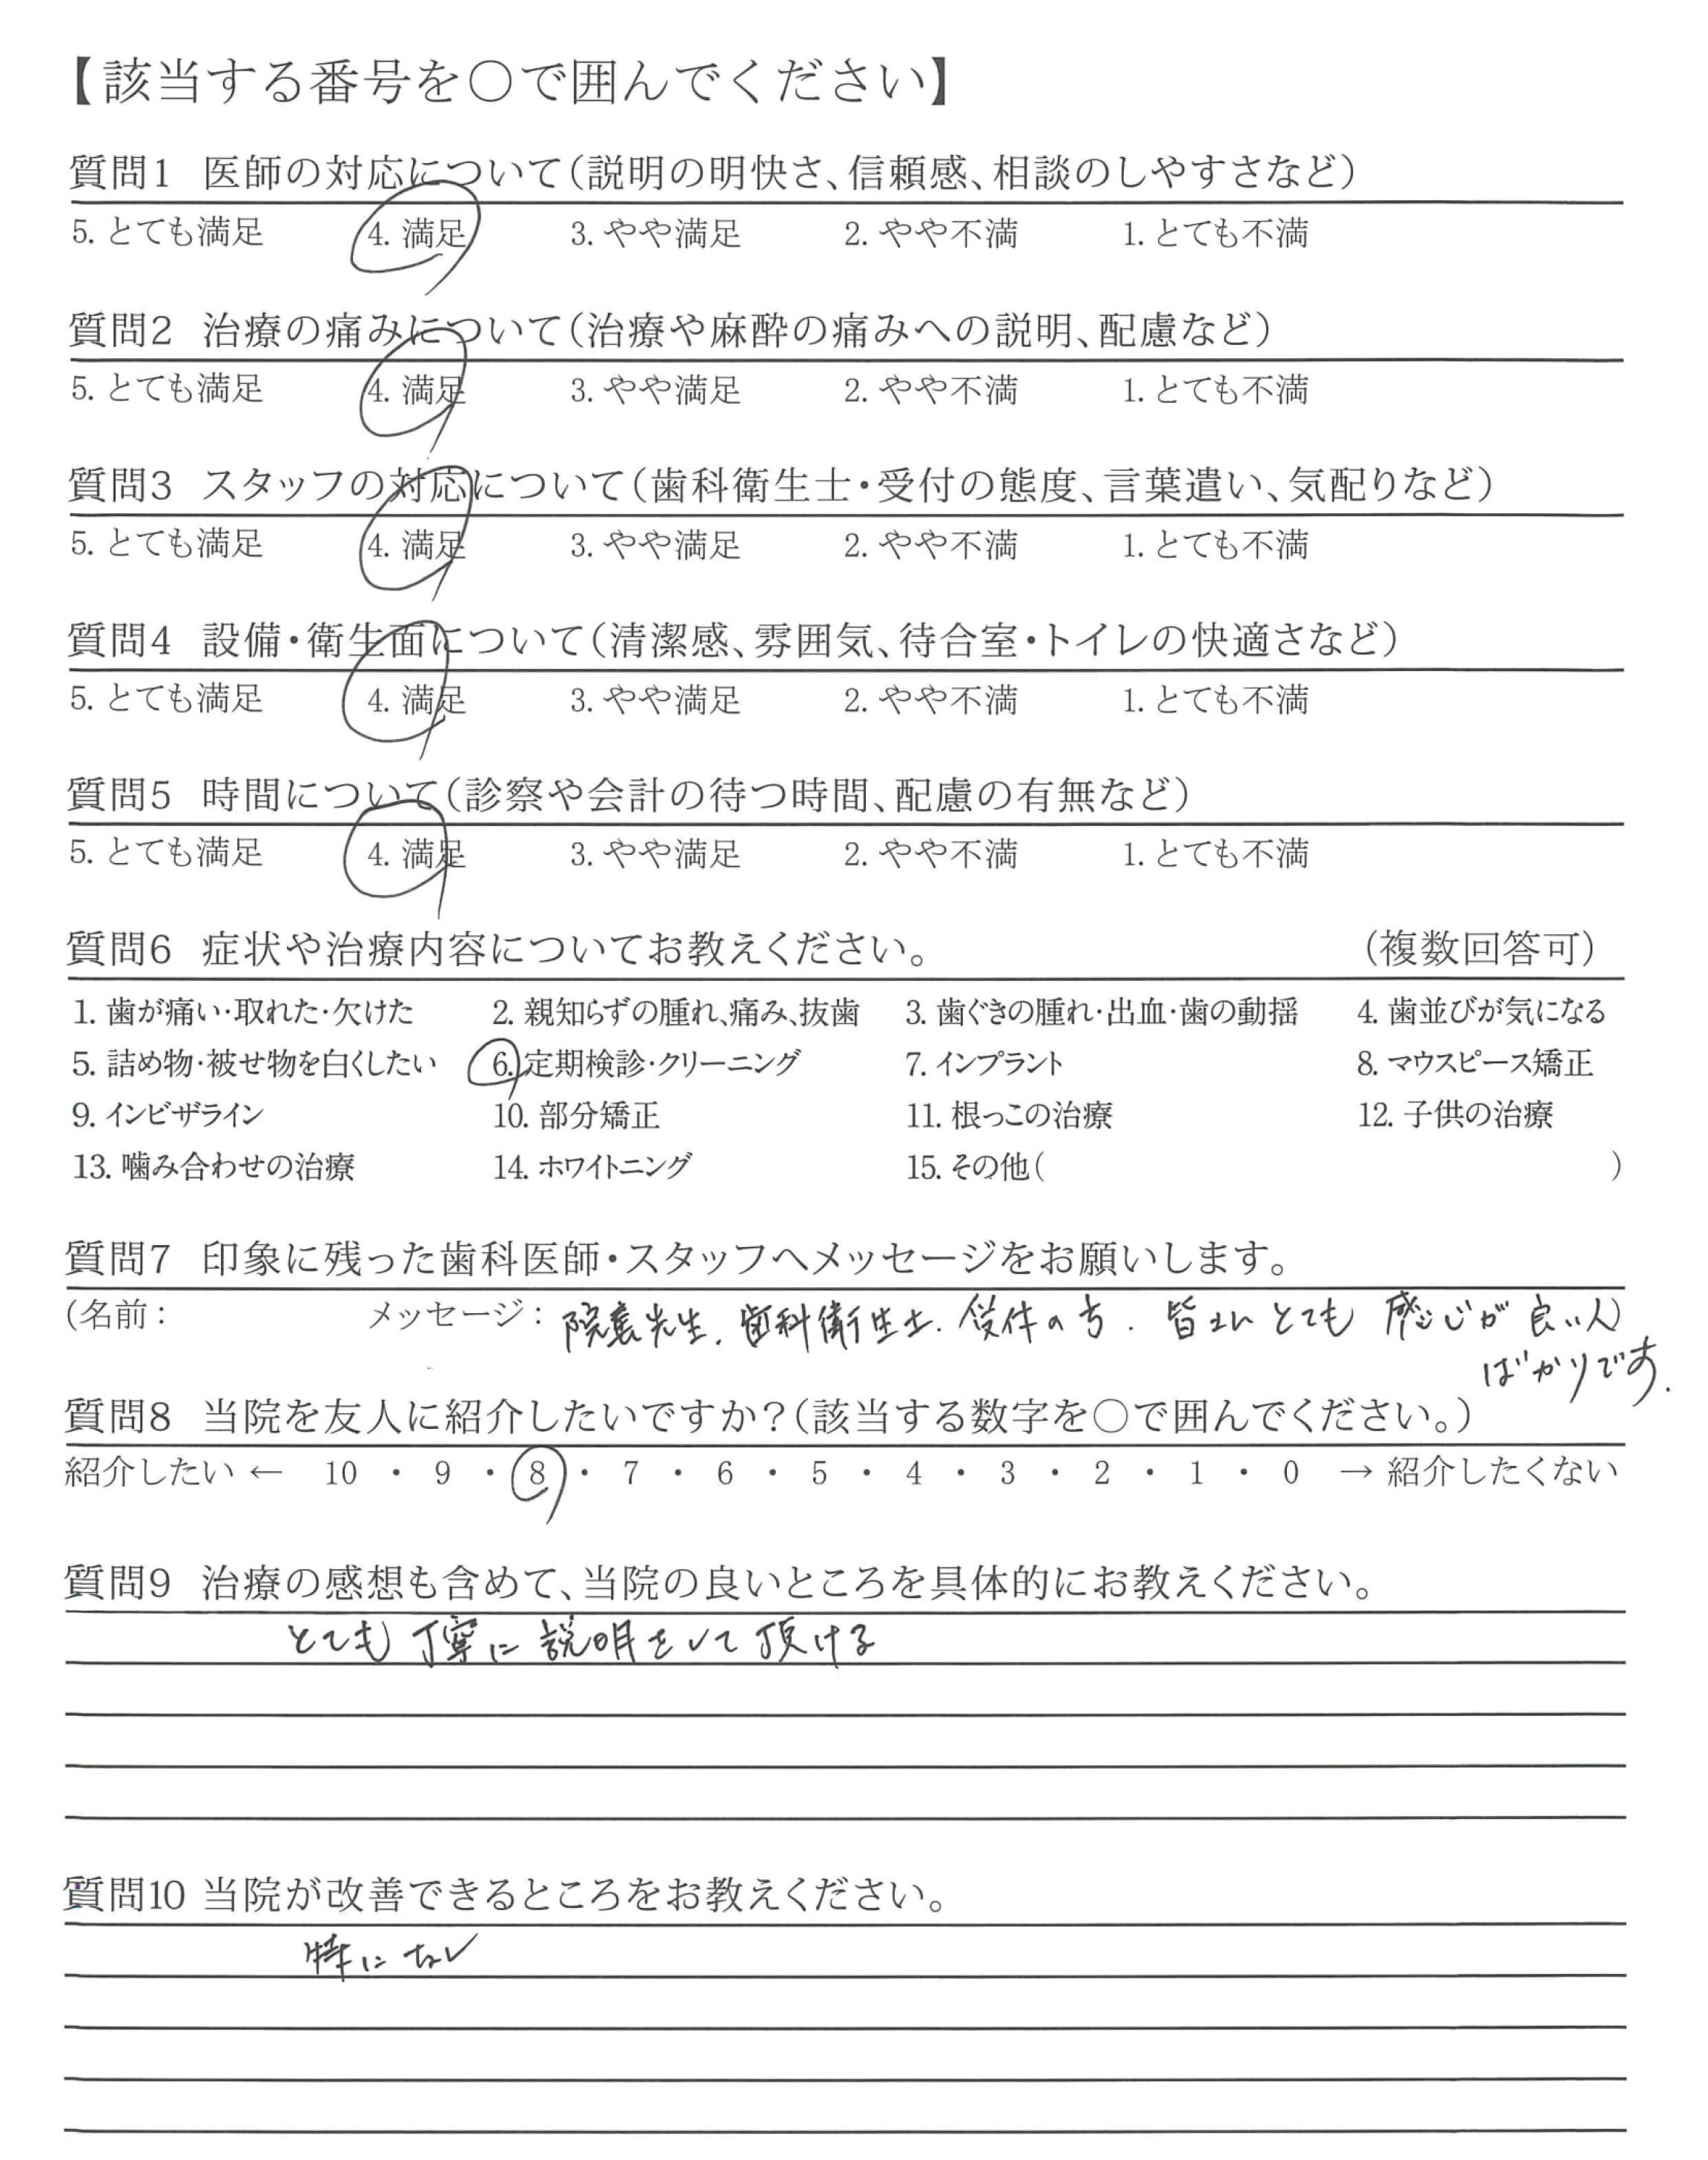 【該当する番号を○で囲んでください】
質問1 医師の対応について（説明の明快さ、信頼感、相談のしやすさなど）
5. とても満足 4. 満足 3. やや満足 2. やや不満 1. とても不満
質問2 治療の痛みについて（治療や麻酔の痛みへの説明、配慮など）
5. とても満足 4. 満足 3. やや満足 2. やや不満 1. とても不満
質問3 スタッフの対応について（歯科衛生士・受付の態度、言葉遣い、気配りなど）
5. とても満足 4. 満足 3. やや満足 2. やや不満 1. とても不満
質問4 設備・衛生面について（清潔感、雰囲気、待合室・トイレの快適さなど）
5. とても満足 4. 満足 3. やや満足 2. やや不満 1. とても不満
質問5 時間について（診察や会計の待つ時間、配慮の有無など）
5. とても満足 4. 満足 3. やや満足 2. やや不満 1. とても不満
質問6 症状や治療内容についてお教えください。 （複数回答可）
1. 歯が痛い・取れた・欠けた 2. 親知らずの腫れ、痛み、抜歯 3. 歯ぐきの腫れ・出血・歯の動揺 4. 歯並びが気になる
5. 詰め物・被せ物を白くしたい 6. 定期検診・クリーニング 7. インプラント 8. マウスピース矯正
9. インビザライン 10. 部分矯正 11. 根っこの治療 12. 子供の治療
13. 噛み合わせの治療 14. ホワイトニング 15. その他（ ）
質問7 印象に残った歯科医師・スタッフへメッセージをお願いします。
（名前： メッセージ： 院長先生．歯科衛生士．受付の方．皆さんとても感じが良い人）
ばかりです．
質問8 当院を友人に紹介したいですか？（該当する数字を○で囲んでください。）
紹介したい ← 10 ・ 9 ・ 8 ・ 7 ・ 6 ・ 5 ・ 4 ・ 3 ・ 2 ・ 1 ・ 0 → 紹介したくない
質問9 治療の感想も含めて、当院の良いところを具体的にお教えください。
とても丁寧に説明をして頂ける
質問10 当院が改善できるところをお教えください。
特になし